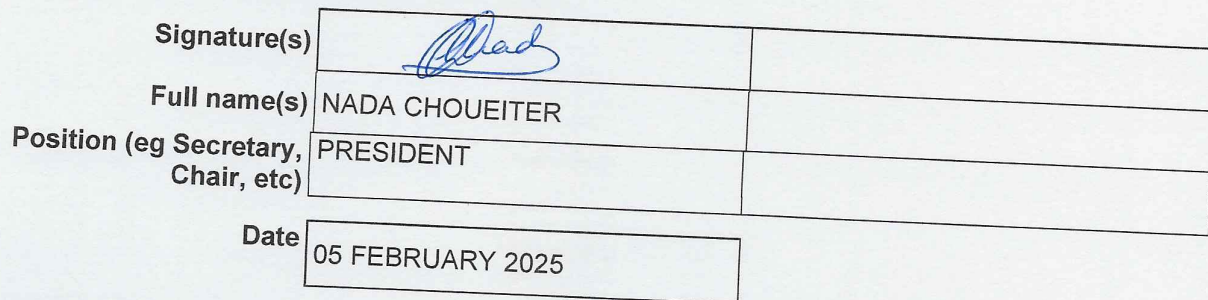 Signature(s)
Full name(s) NADA CHOUEITER
Position (eg Secretary, PRESIDENT
Chair, etc)
Date 05 FEBRUARY 2025